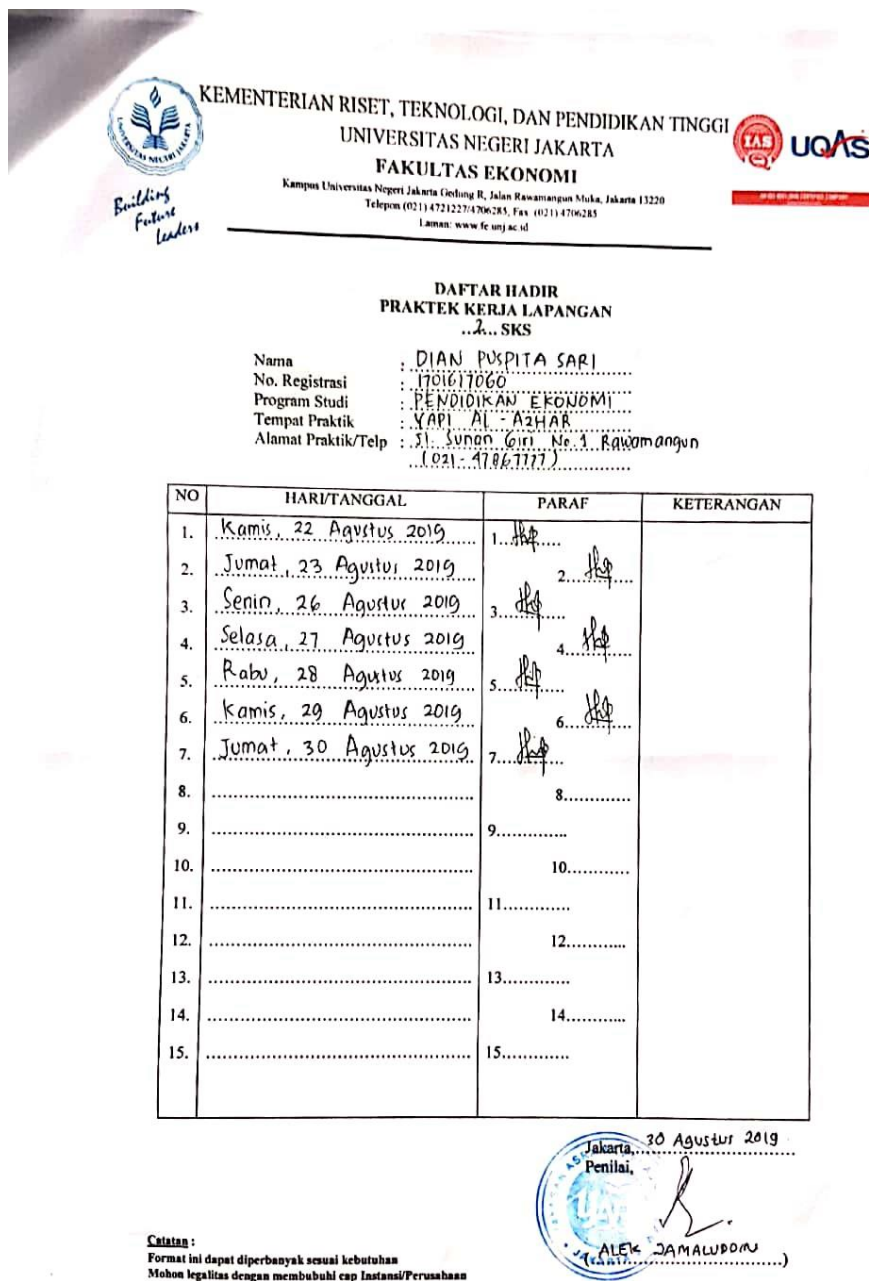 KEMENTERIAN RISET, TEKNOLOGI, DAN PENDIDIKAN TINGGI
UNIVERSITAS NEGERI JAKARTA
FAKULTAS EKONOMI
Kampus Universitas Negeri Jakarta Gedung R, Jalan Rawamangun Muka, Jakarta 13220
Telepon (021) 4721227/4706285, Fax (021) 4706285
Laman: www.fe.unj.ac.id
UNIVERSITAS NEGERI JAKARTA
Building
Future
Leaders
IAS
UQAS
DAFTAR HADIR
PRAKTEK KERJA LAPANGAN
..2... SKS
Nama : DIAN PUSPITA SARI
No. Registrasi : 1701617060
Program Studi : PENDIDIKAN EKONOMI
Tempat Praktik : YAPI AL - AZHAR
Alamat Praktik/Telp : Jl. Sunan Giri No.1 Rawamangun
(021 - 47867777)
NO HARI/TANGGAL PARAF KETERANGAN
1. Kamis, 22 Agustus 2019 1.
2. Jumat, 23 Agustus 2019 2.
3. Senin, 26 Agustus 2019 3.
4. Selasa, 27 Agustus 2019 4.
5. Rabu, 28 Agustus 2019 5.
6. Kamis, 29 Agustus 2019 6.
7. Jumat, 30 Agustus 2019 7.
8. 8.
9. 9.
10. 10.
11. 11.
12. 12.
13. 13.
14. 14.
15. 15.
Jakarta, 30 Agustus 2019
Penilai,
(ALEK JAMALUDDIN)
Catatan :
Format ini dapat diperbanyak sesuai kebutuhan
Mohon legalitas dengan membubuhi cap Instansi/Perusahaan